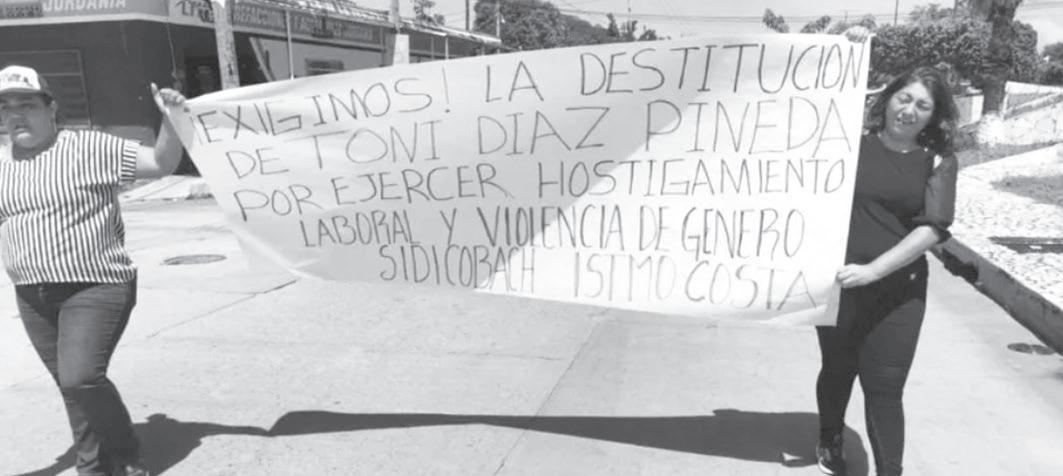 JORDANIA
¡EXIGIMOS! LA DESTITUCION
DE TONI DIAZ PINEDA
POR EJERCER HOSTIGAMIENTO
LABORAL Y VIOLENCIA DE GENERO
SIDICOBACH ISTMO COSTA